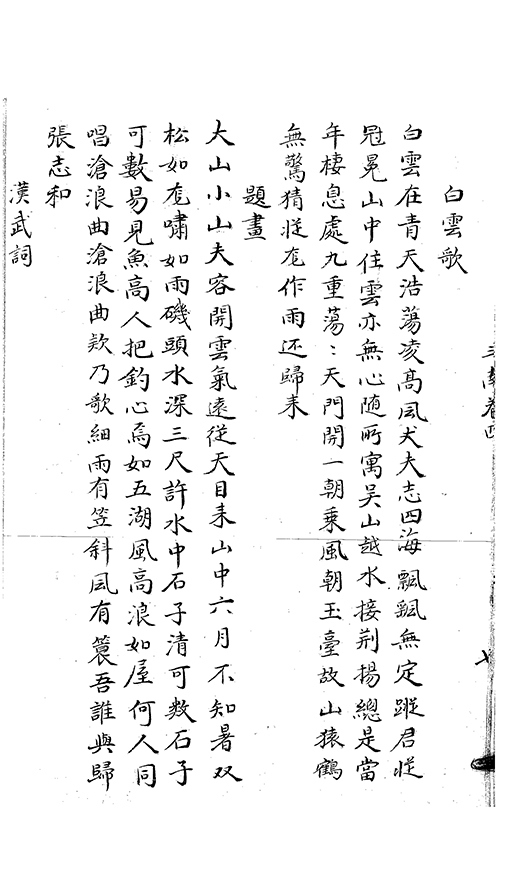 白雲歌
白雲在青天浩蕩凌髙风犬夫志四海飄飄無定蹤君従
冠冕山中住雲亦無心随所寓吴山越水接荆揚總是當
年棲息處九重蕩〻天門開一朝乗風朝玉臺故山猿鶴
無驚猜従龙作雨还歸来
題畫
大山小山夫容開雲氣遠從天目来山中六月不知暑双
松如龙嘯如雨磯頭水深三尺許水中石子清可数石子
可數易見魚高人把釣心焉如五湖風高浪如屋何人同
唱滄浪曲滄浪曲欸乃歌細雨有笠斜风有簑吾誰與歸
張志和
漢武詞